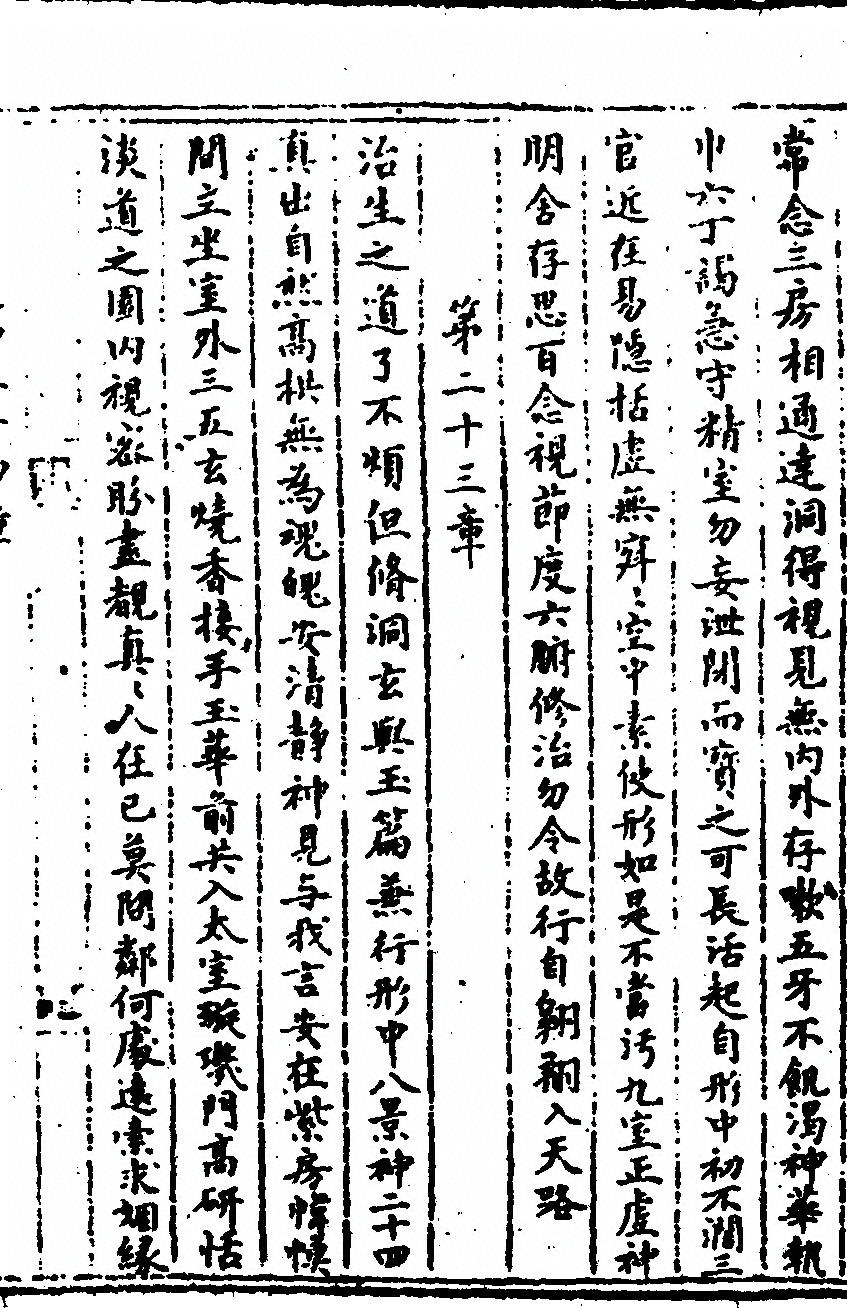 常念三房相通達洞得視見無內外存嗽五牙不飢渴神華執
巾六丁謁急守精室勿妄泄閉而寶之可長活起自形中初不濶三
官近在易隱括虛無寂〻空中素使形如是不當汚九室正虛神
明舍存思百念視節度六腑修治勿令故行自翱翔入天路
第二十三章
治生之道了不煩但脩洞玄與玉篇兼行形中八景神二十四
真出自然高拱無為魂魄安清靜神見与我言安在紫房幃幙
間立坐室外三五玄燒香接手玉華前共入太室璇璣門高研恬
淡道之園內視密盼盡覩真〻人在已莫問鄰何處遠索求姻緣